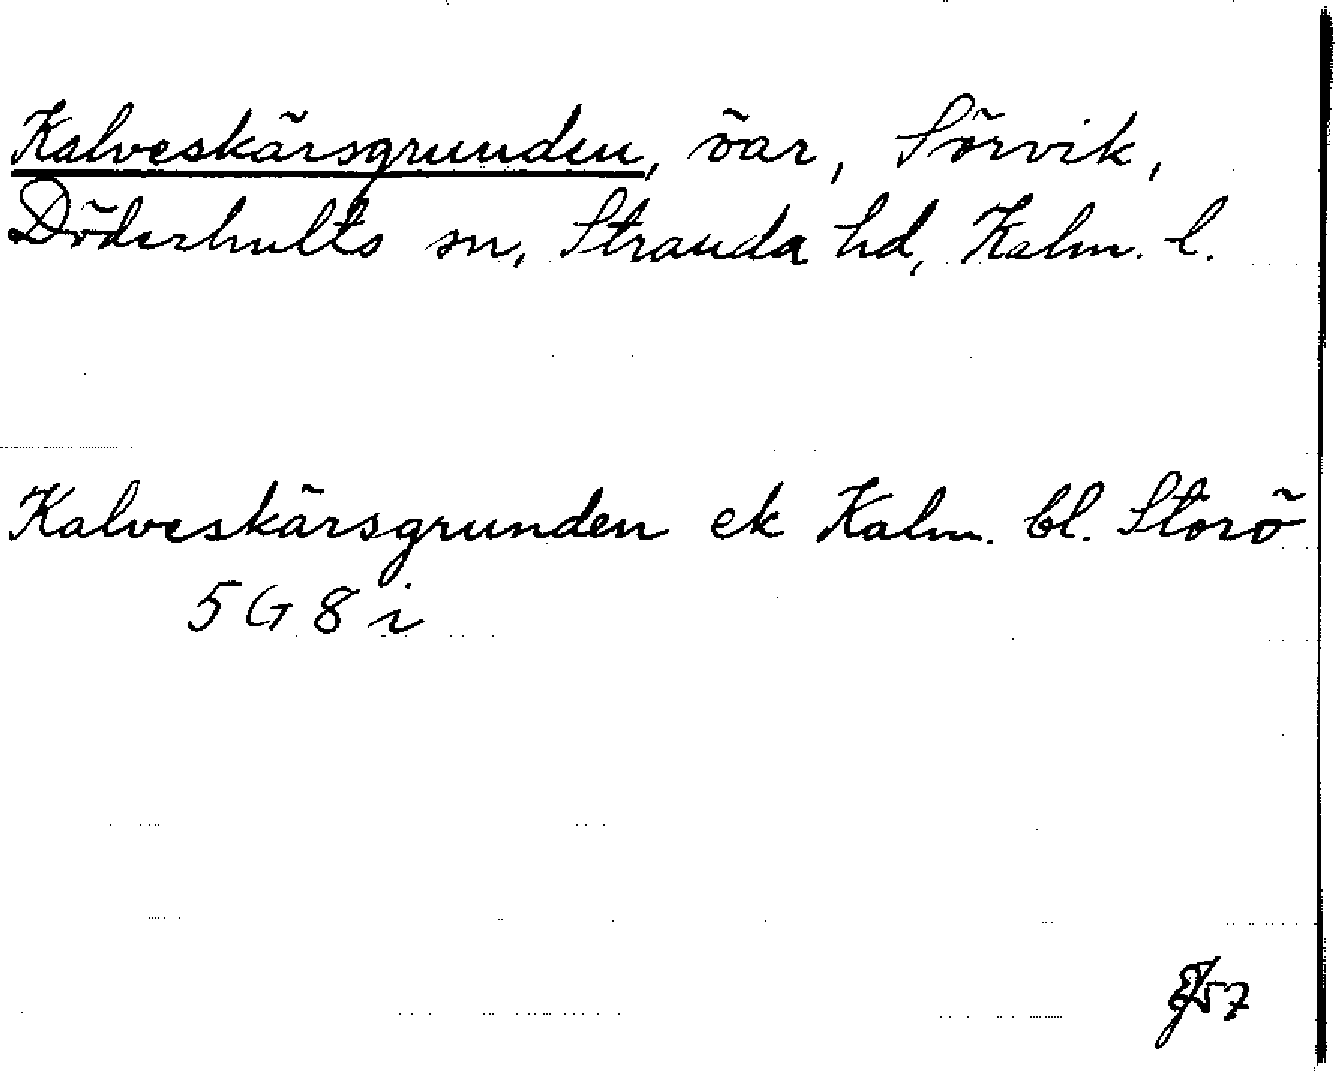 Kalveskärsgrunden, öar, Sörvik,
Döderhults sn, Stranda hd, Kalm. l.
Kalveskärsgrunden ek Kalm. bl. Storö
5 G 8 i
57